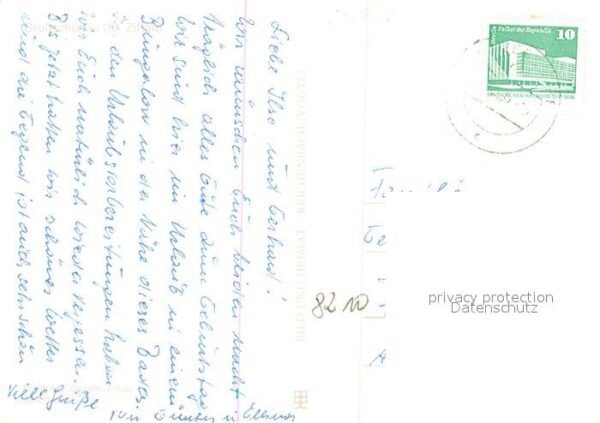 Liebe Ilse und Gerhard!
Wir wünschen Euch beiden nachträglich alles Gute zum Geburtstag
Wir sind hier im Urlaub in einem
Bungalow in der Nähe dieses Bades.
In den Urlaubsvorbereitungen haben
wir Euch natürlich wieder vergessen.
Bis jetzt hatten wir schönes Wetter
und die Gegend ist auch sehr schön
Viele Grüße
von Günter u.
BILD UND HEIMAT · REICHENBACH (VOGTL)
Palast der Republik
10
8210
Famil
Ge
A
privacy protection
Datenschutz